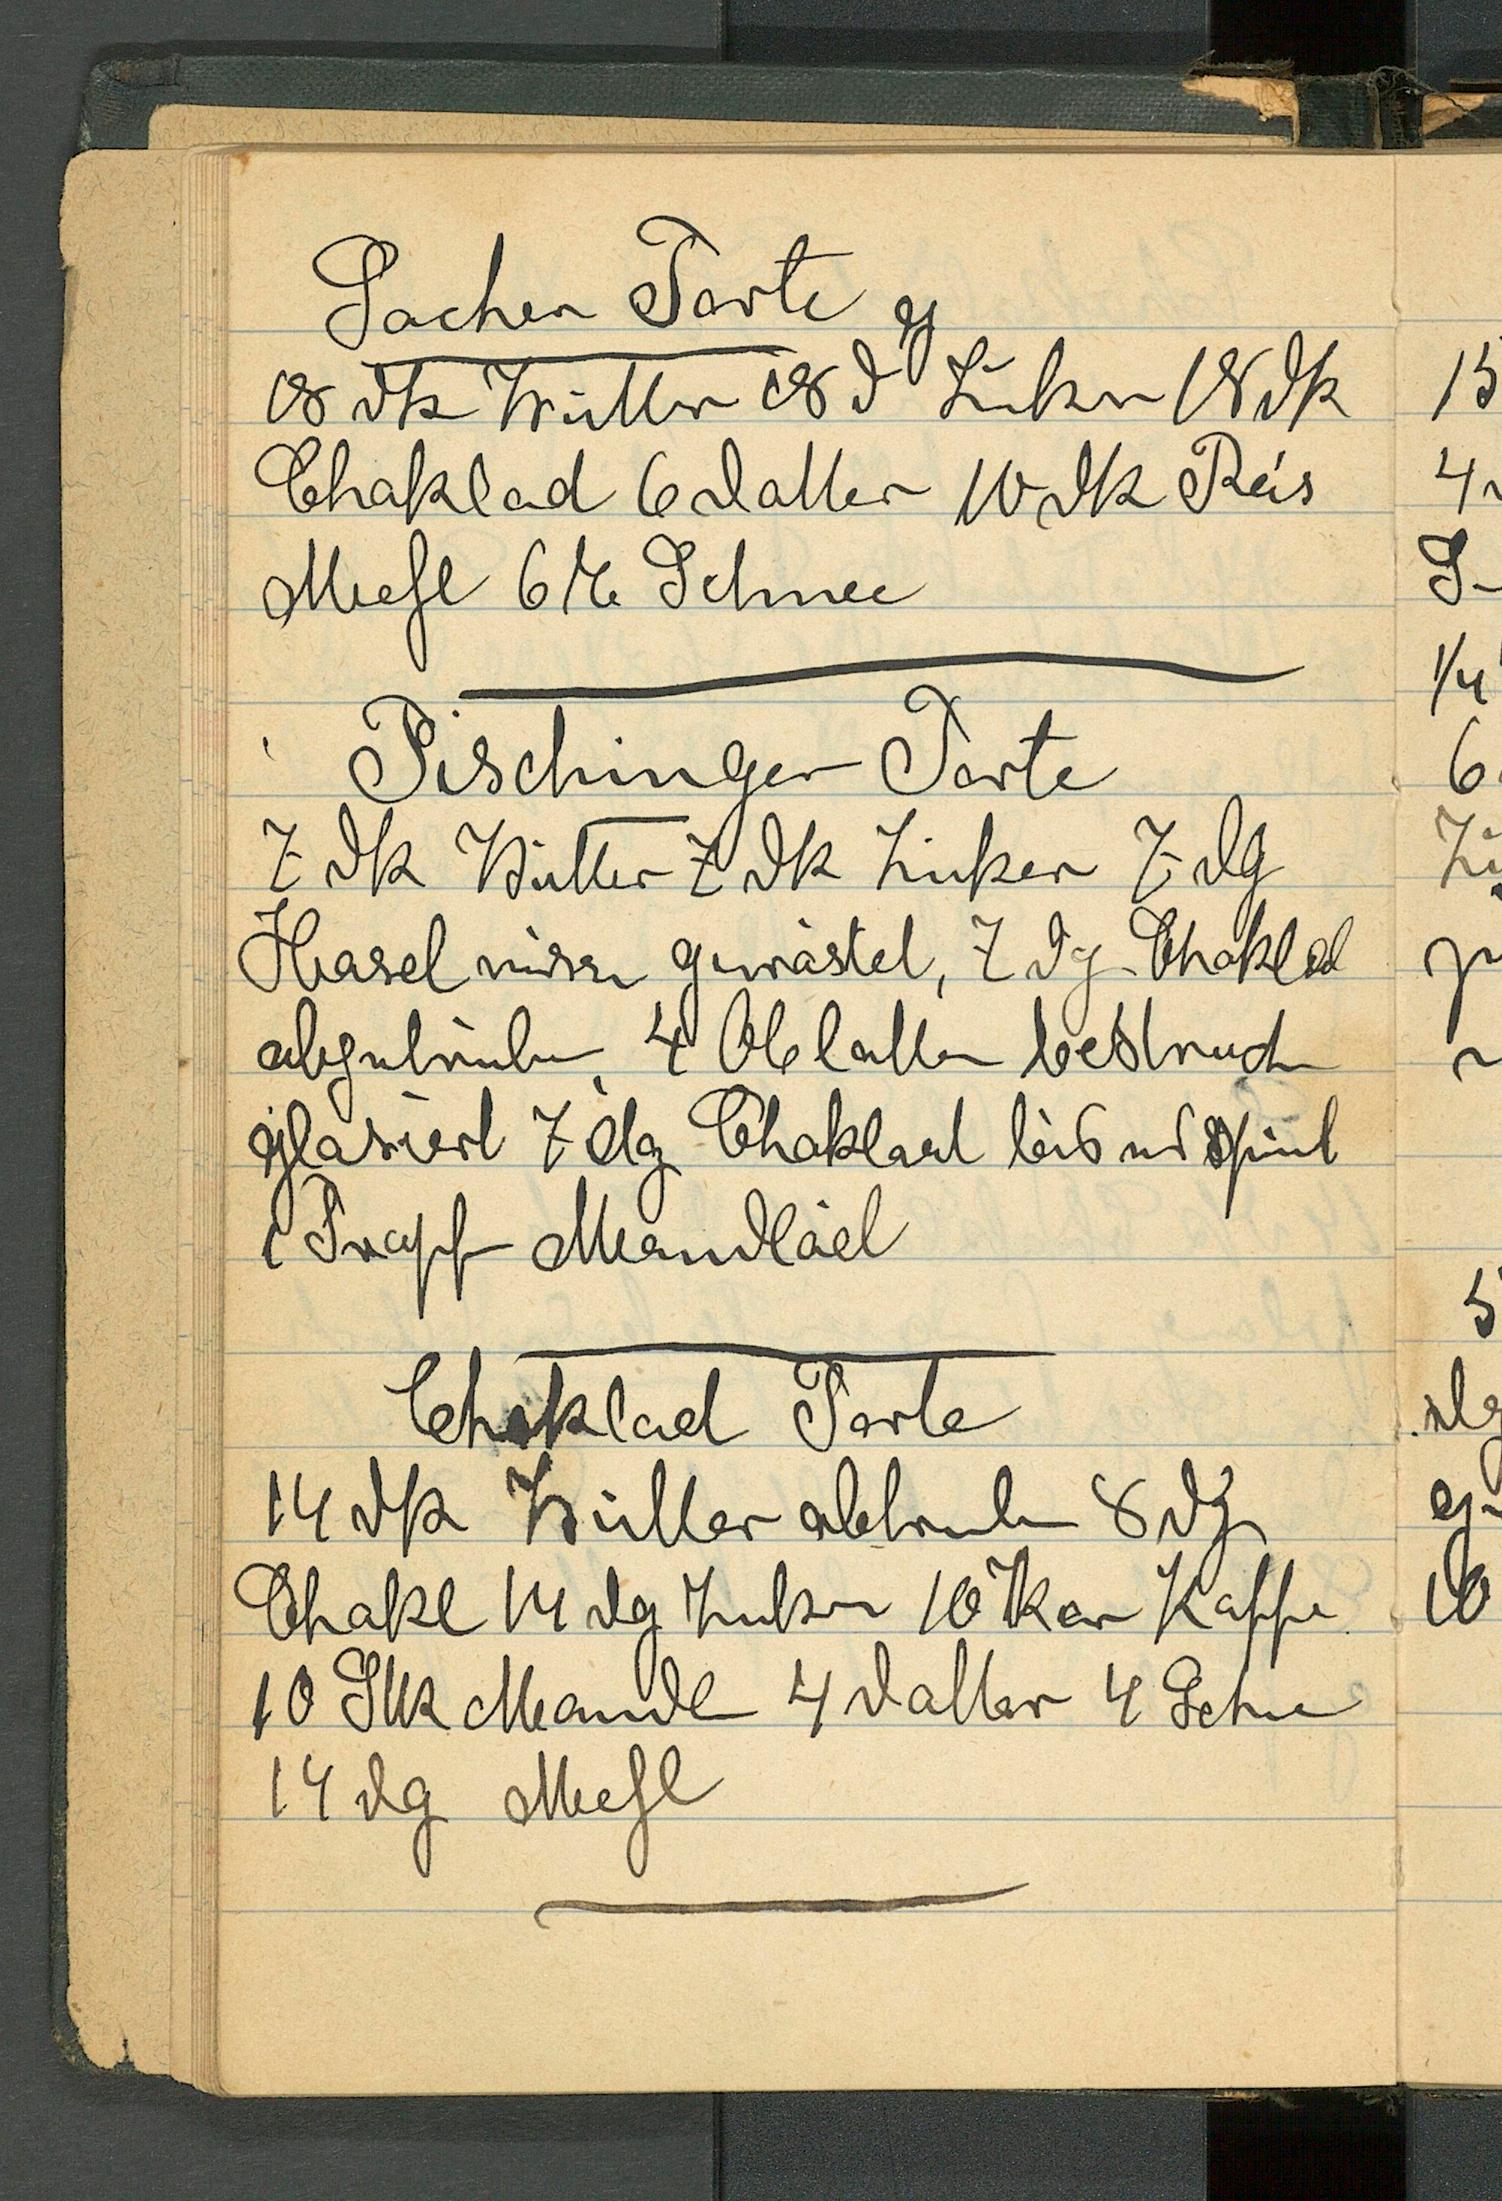 Sacher Torte
18 dk Butter 18 dg Zuker 18 dk
Choklad 6 dotter 10 dk Reis
Mehl 6 Schnee
Pischinger Torte
7 dk Butter 7 dk Zuker 7 dg
Haselnüsse geröstet, 7 dg Choklad
abgetrieben, 4 Oblatten bestrichen
glasiert 7 dg Choklad
1 Tropf Mandlöel
Choklad Torte
14 dk Butter abtreiben 8 dg
Chokl 14 dg Zuker 10 Kaffe
10 Stk Mandl 4 dotter 4 Schne
14 dg Mehl
15
4
S
1/4
6
Zu
5
dg
10